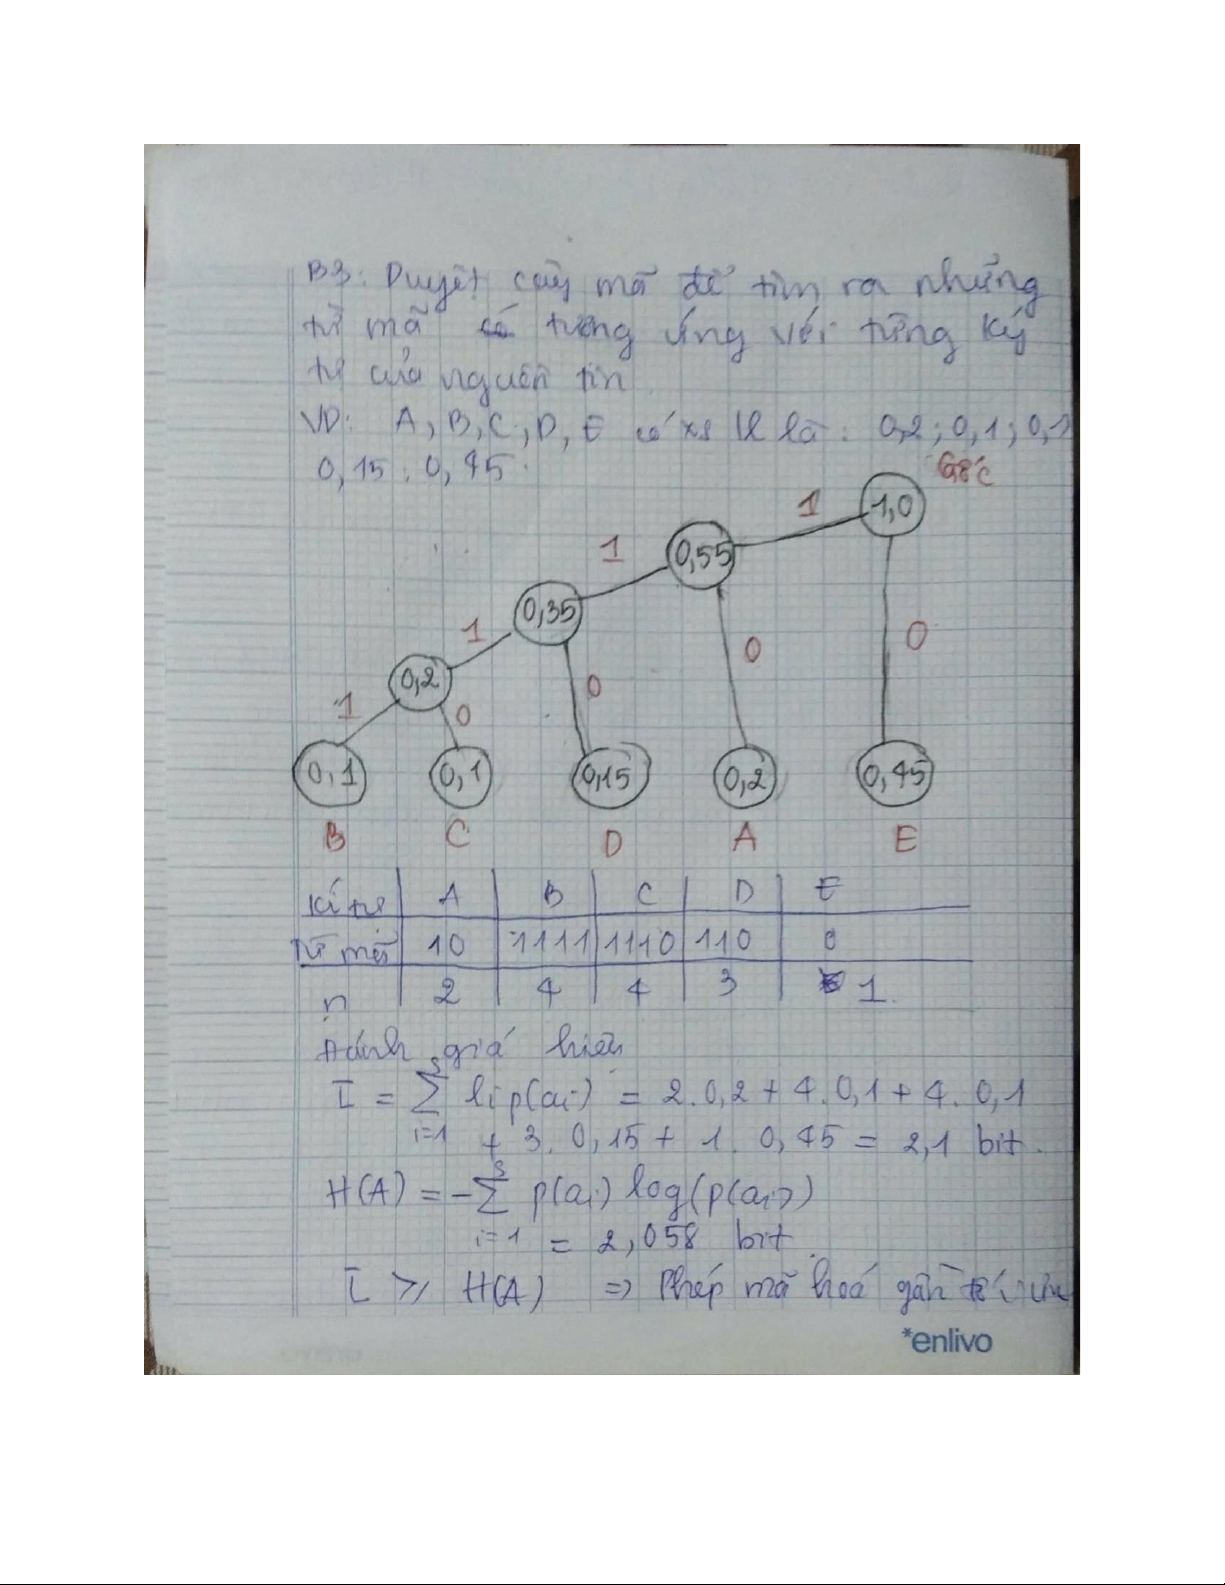 B3: Duyệt cây mã để tìm ra những
từ mã có tương ứng với từng ký
tự của nguồn tin
VD: A, B, C, D, E có xs là : 0,2 ; 0,1 ; 0,1
0,15 ; 0,45
Gốc
1 1,0
1 0,55
1 0,35
1 0,2 0 0 0 0
0,1 0,1 0,15 0,2 0,45
B C D A E
Kí tự A B C D E
Từ mã 10 1111 1110 110 0
n 2 4 4 3 1
Đánh giá hiệu
L = 5∑i=1 li p(ai) = 2.0,2 + 4.0,1 + 4.0,1
+ 3.0,15 + 1.0,45 = 2,1 bit.
H(A) = -5∑i=1 p(ai) log(p(ai))
= 2,058 bit
L ⩾ H(A) => Phép mã hoá gần tối ưu
*enlivo